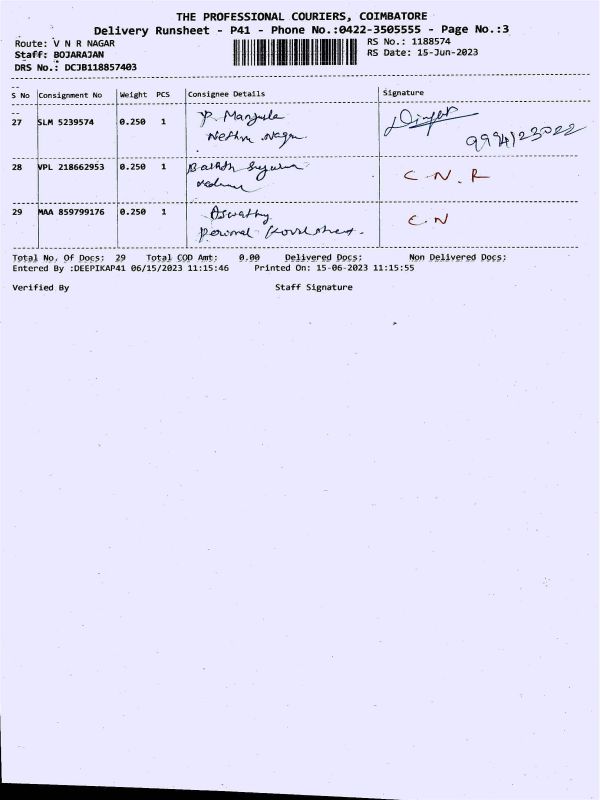 THE PROFESSIONAL COURIERS, COIMBATORE
Delivery Runsheet - P41 - Phone No.:0422-3505555 - Page No.:3
Route: V N R NAGAR RS No.: 1188574
Staff: BOJARAJAN RS Date: 15-Jun-2023
DRS No.: DCJB118857403
S No Consignment No Weight PCS Consignee Details Signature
27 SLM 5239574 0.250 1 P. Manjula
Nethu Nagar 9994123022
28 VPL 218662953 0.250 1 C N. R
29 MAA 859799176 0.250 1 Aswathy C N
Total No. Of Docs: 29 Total COD Amt: 0.00 Delivered Docs: Non Delivered Docs:
Entered By :DEEPIKAP41 06/15/2023 11:15:46 Printed On: 15-06-2023 11:15:55
Verified By Staff Signature